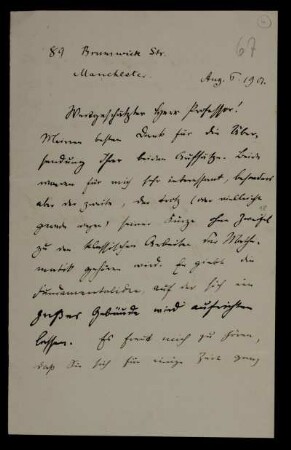 67
89 Brunswick Str.
Manchester.
Aug. 5 190
Wertgeschätzter Herr Professor!
Meinen besten Dank für die Über-
sendung Ihrer beiden Aufsätze. Beide
waren für mich sehr interessant, besonders
aber der zweite, der trotz (oder vielleicht
gerade wegen) seiner Kürze ohne Zweifel
zu den klassischen Arbeiten der Mathe-
matik gehören wird. Er giebt die
Fundamentalidee, auf der sich ein
großes Gebäude wird aufrichten
lassen. Es freut mich zu hören,
daß Sie sich für einige Zeit ganz